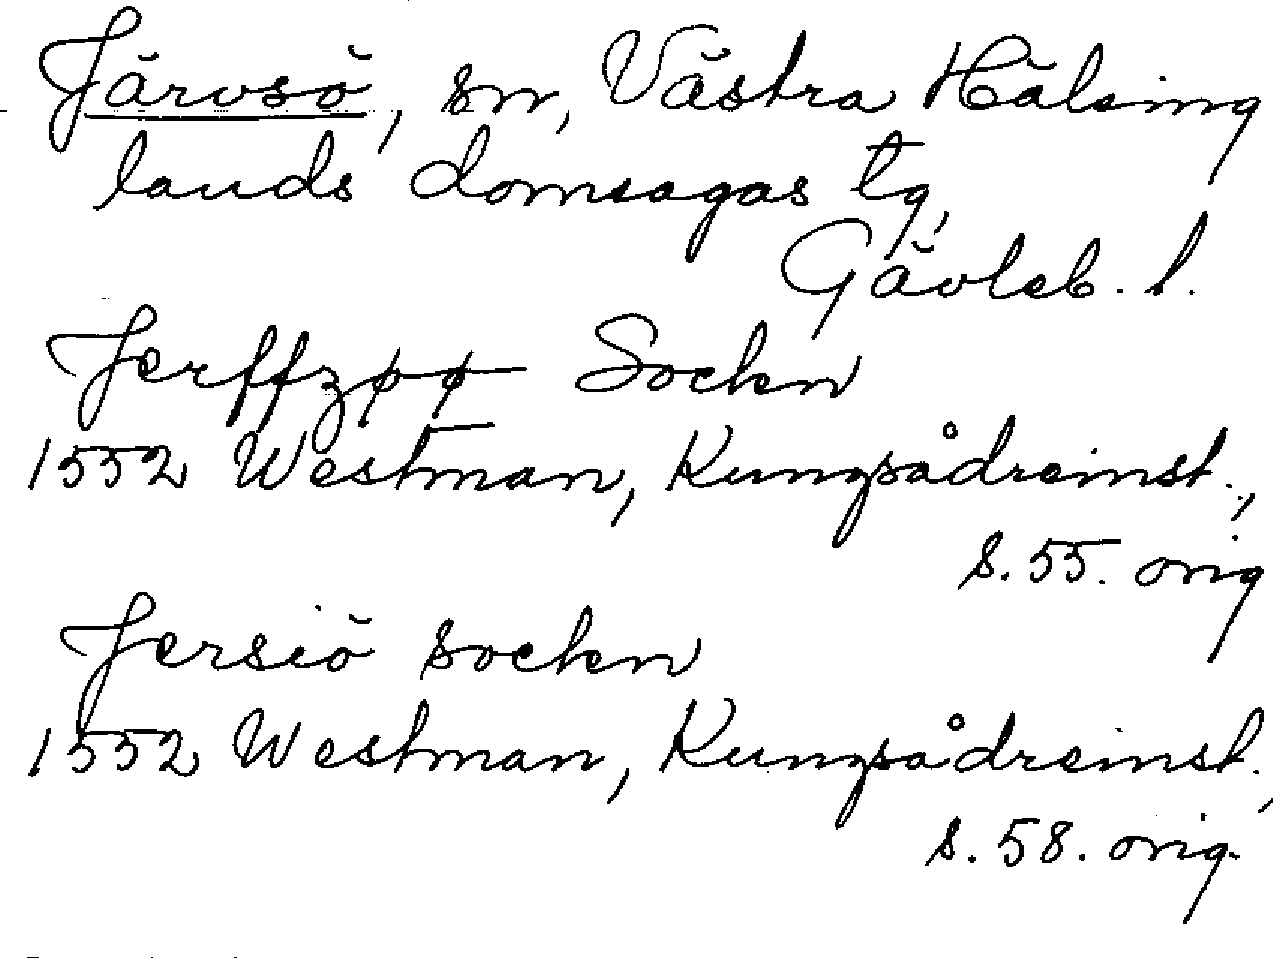 Järvsö, sn, Västra Hälsing
lands domsagas tg,
Gävleb. l.
Jerffzøø Sockn
1552 Westman, Kungsådreinst.,
s. 55. orig
Jersiö sockn
1552 Westman, Kungsådreinst.,
s. 58. orig.